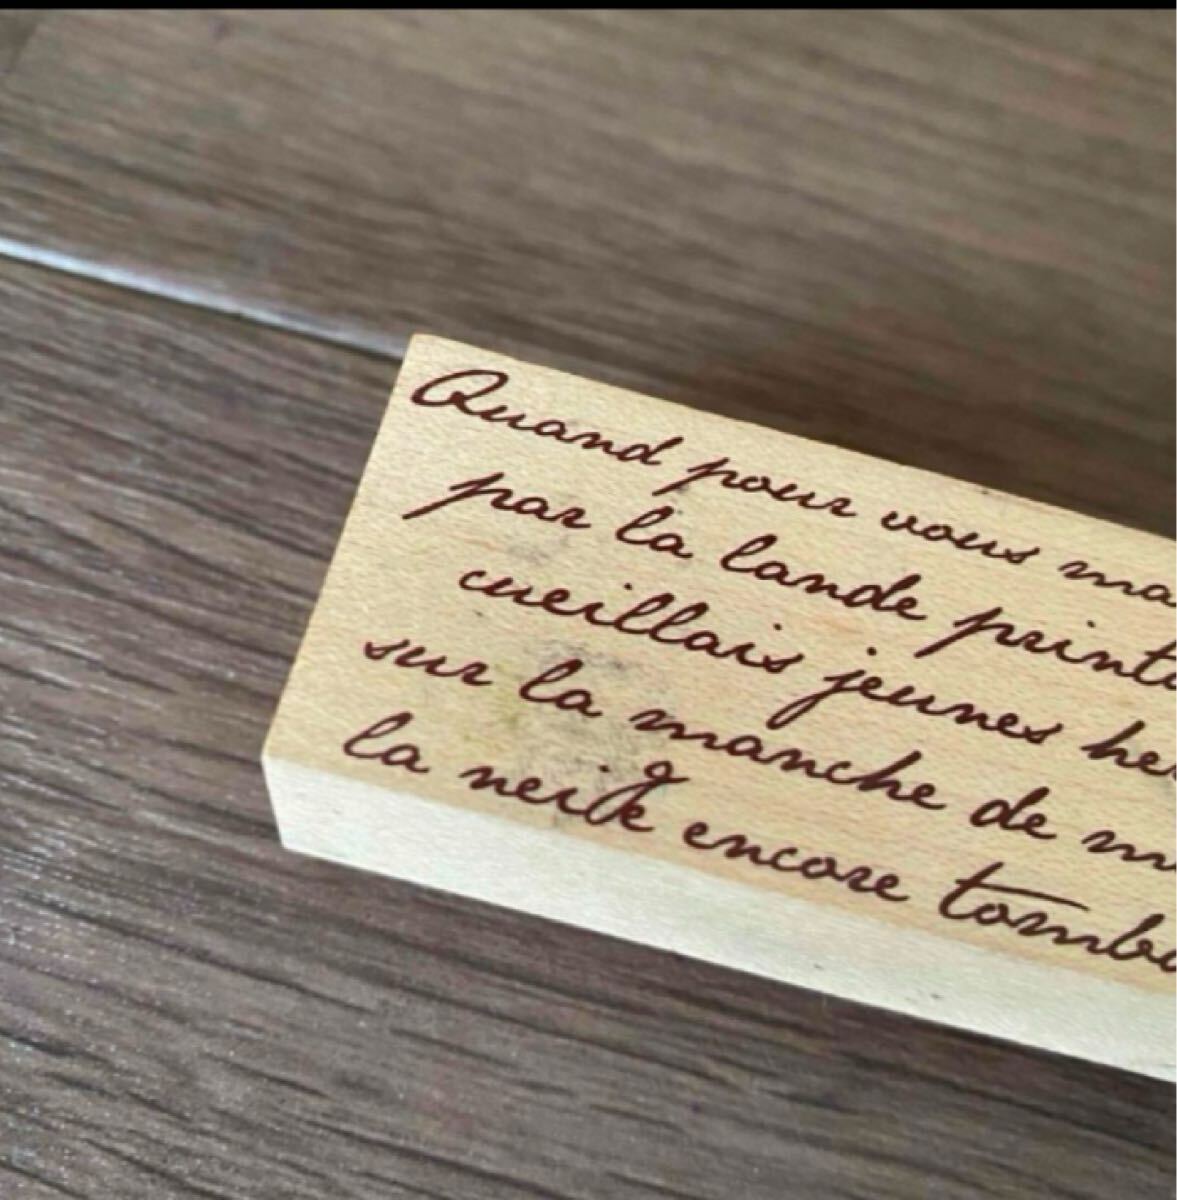 Quand pour vous ma
par la lande print
cueillais jeunes he
sur la manche de m
la neige encore tomb